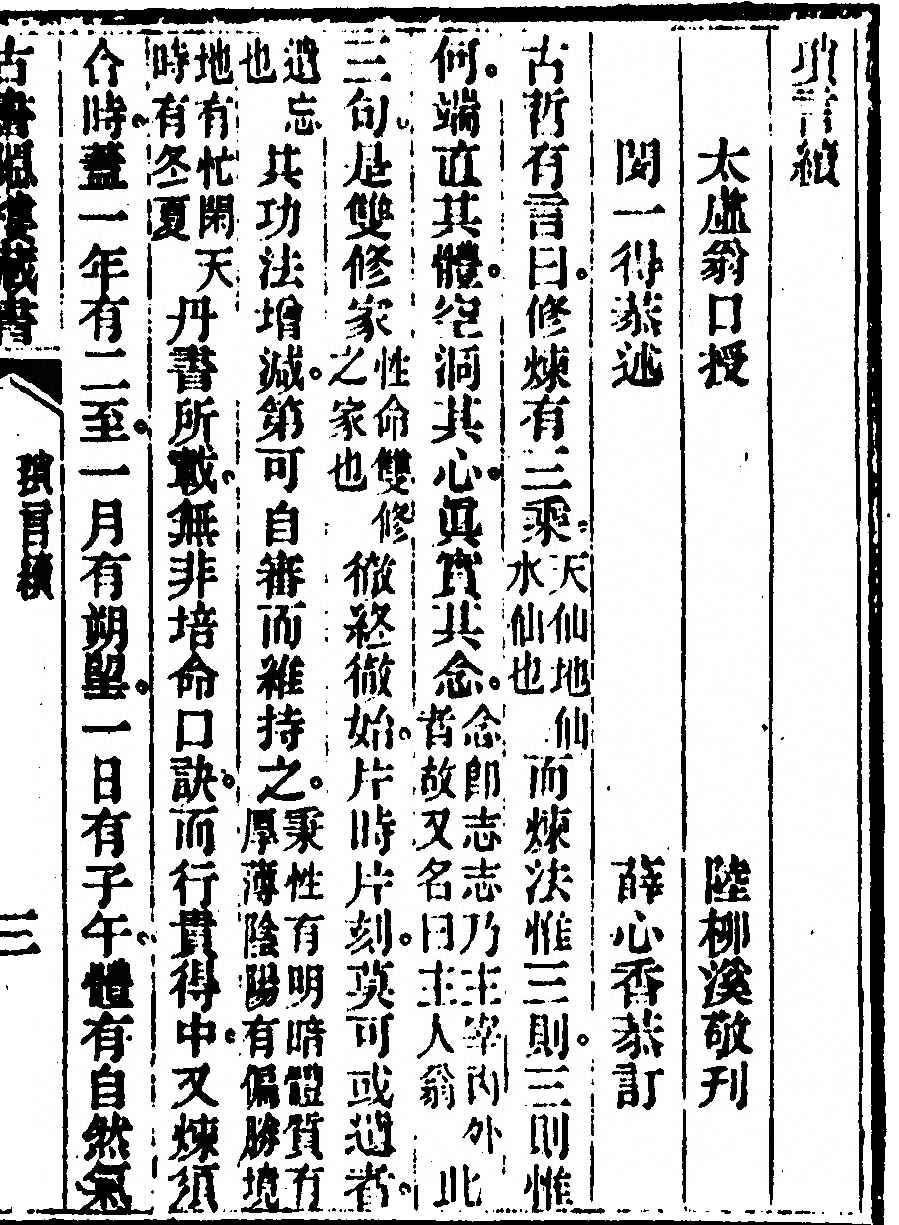 瑣言續
太虛翁口授　陸柳溪敬刊
閔一得恭述　薛心香恭訂
古哲有言曰。修煉有三乘。天仙地仙水仙也而煉法惟三則。三則惟
何。端直其體。空洞其心。眞實其念。念卽志志乃主宰內外者故又名曰主人翁此
三句。是雙修家性命雙修之家也徹終徹始。片時片刻。莫可或遏者。
遏忘也其功法增減。第可自審而維持之。秉性有明暗體質有厚薄陰陽有偏勝境
地有忙閑天時有冬夏丹書所載。無非培命口訣。而行貴得中。又煉須
合時。蓋一年有二至。一月有朔望。一日有子午。體有自然氣
古書隱樓藏書
瑣言續
三